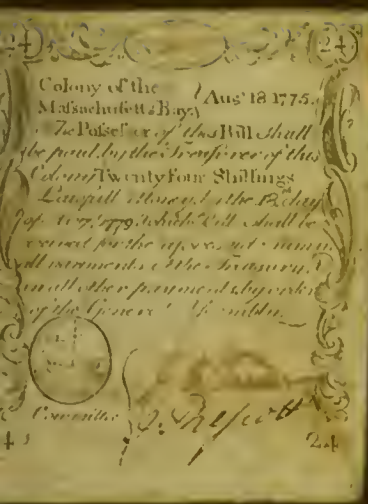 24 24
Colony of the
Massachusetts Bay } Augt 18 1775.
The Possessor of this Bill shall
be paid by the Treasurer of this
Colony Twenty Four Shillings
Lawfull Money by the 18 day
of Augt 1779 which Bill shall be
received for the aforesaid summ
in all payments at the Treasury &
in all other payments by order
of the General Assembly.
Committee J. Prescott
24